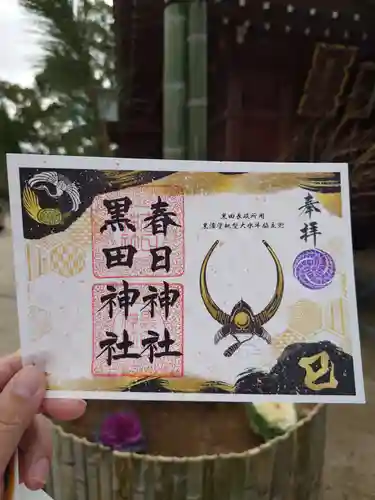 奉拝
黒田長政所用
黒漆塗桃型大水牛脇立兜
春日神社
黒田神社
巳